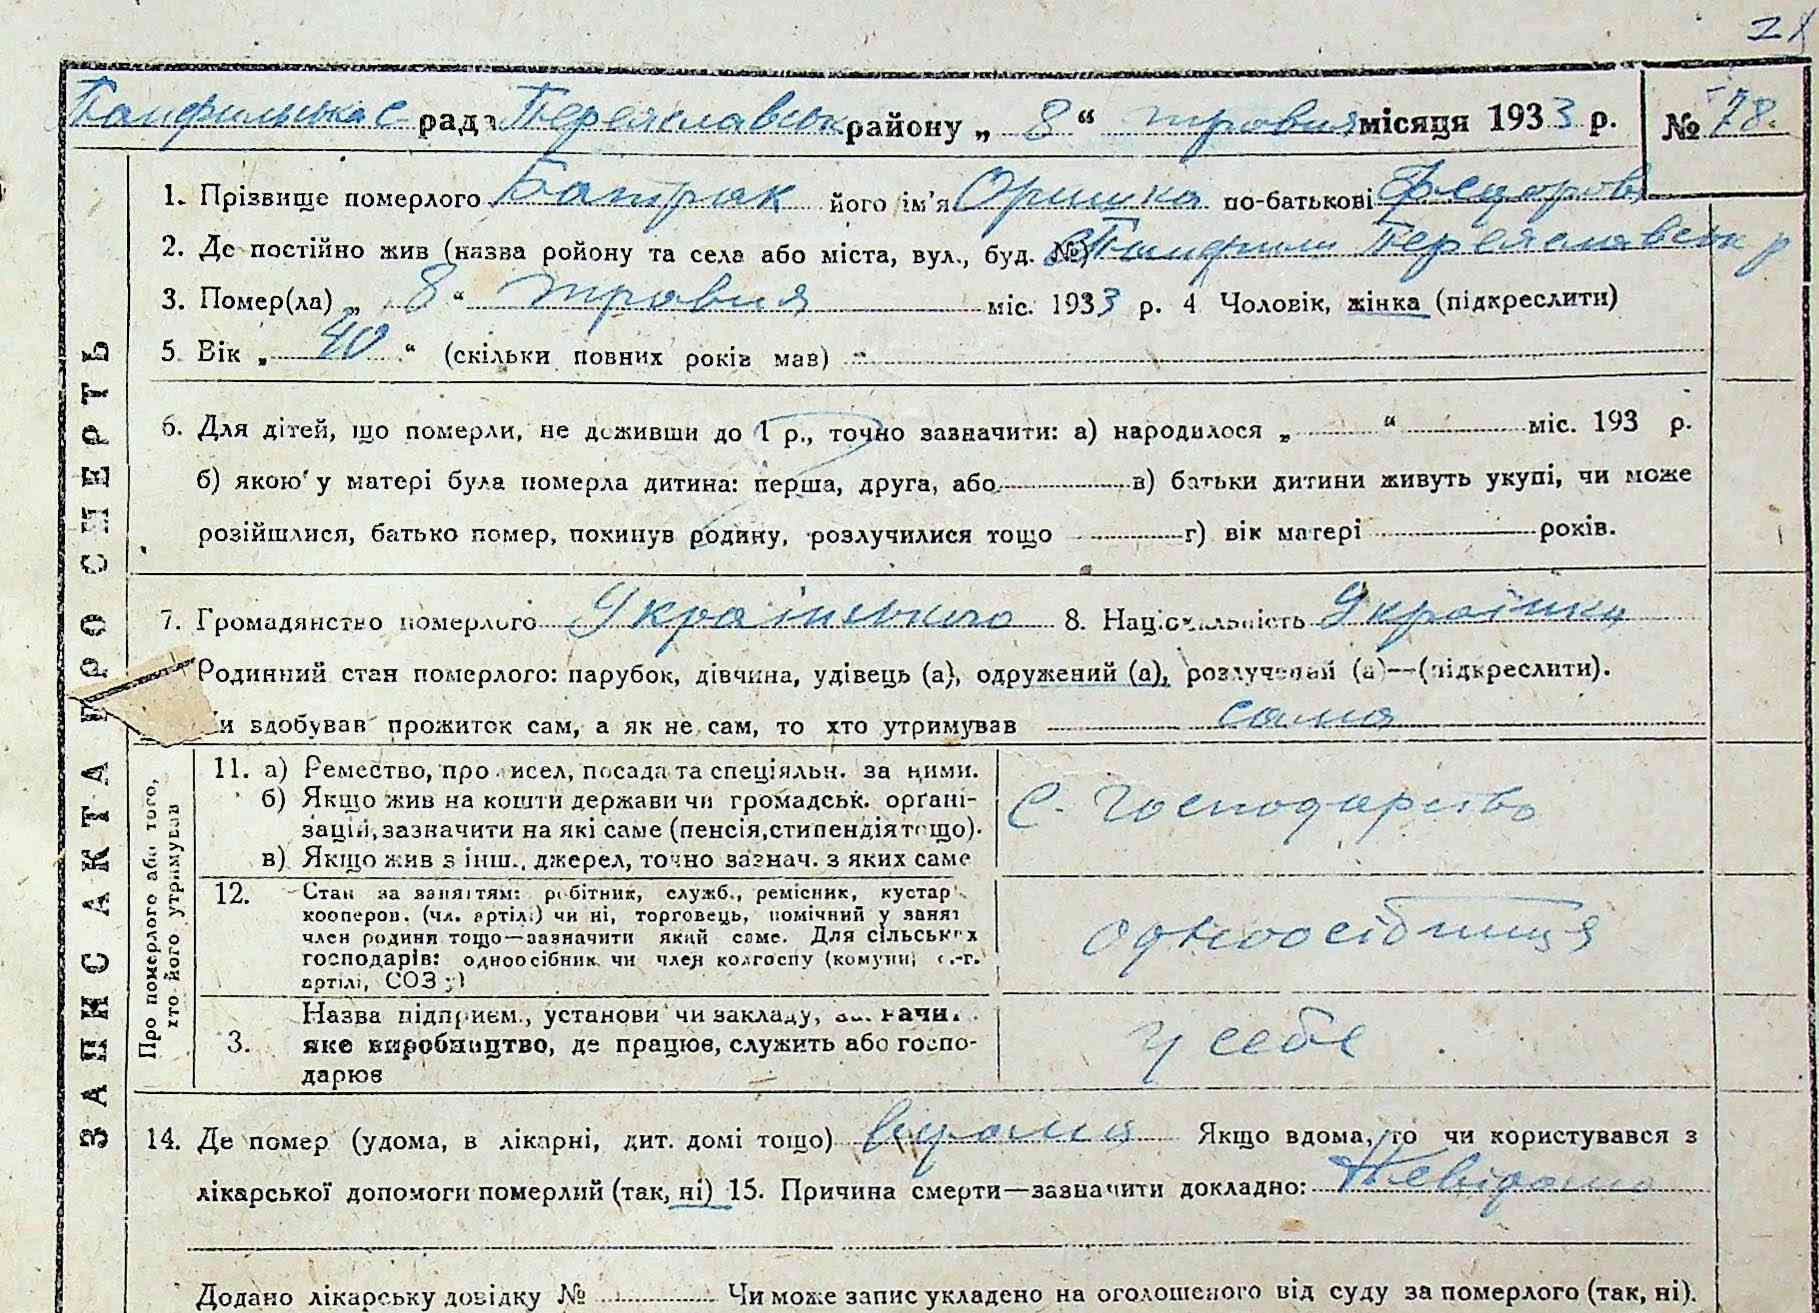 28
Панфильська с рада Переяславськ району „ 8 “ травня місяця 1933 р. № 78.
ЗАПИС АКТА ПРО СМЕРТЬ
1. Прізвище померлого Батрак його ім'я Оришка по-батькові Федоров
2. Де постійно жив (назва ройону та села або міста, вул., буд. №) с Панфили Переяславськ р
3. Помер(ла) „ 8 “ травня міс. 1933 р. 4 Чоловік, жінка (підкреслити)
5. Вік „ 40 “ (скільки повних років мав)
6. Для дітей, що померли, не доживши до 1 р., точно зазначити: а) народилося „ “ міс. 193 р.
б) якою у матері була померла дитина: перша, друга, або в) батьки дитини живуть укупі, чи може
розійшлися, батько помер, покинув родину, розлучилися тощо г) вік матері років.
7. Громадянство померлого Українського 8. Національність Українка
Родинний стан померлого: парубок, дівчина, удівець (а), одружений (а), розлучений (а)—(підкреслити).
и здобував прожиток сам, а як не сам, то хто утримував сама
Про померлого або того, хто його утримував
11. а) Ремество, промисел, посада та спеціяльн. за ними.
б) Якщо жив на кошти держави чи громадськ. органі-
зацій, зазначити на які саме (пенсія, стипендія тощо).
в) Якщо жив з інш., джерел, точно зазнач. з яких саме
С. Господарство
12. Стан за заняттям: робітник, служб., ремісник, кустар
кооперов. (чл. артілі) чи ні, торговець, помічний у занят
член родини тощо—зазначити який саме. Для сільських
господарів: одноосібник чи член колгоспу (комуни, с.-г.
артілі, СОЗ у)
одноосібниця
3. Назва підприєм., установи чи закладу, зазначи.
яке виробництво, де працює, служить або госпо-
дарює
у себе
14. Де помер (удома, в лікарні, дит. домі тощо) вдома Якщо вдома, то чи користувався з
лікарської допомоги померлий (так, ні) 15. Причина смерти—зазначити докладно: Невідомо
Додано лікарську довідку № Чи може запис укладено на оголошеного від суду за померлого (так, ні).